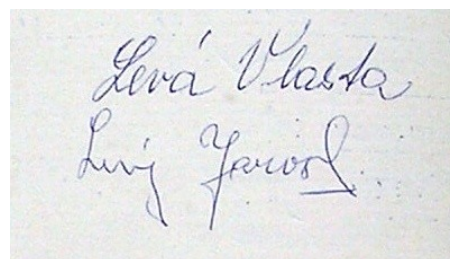 Levá Vlasta
Levý Jarosl.